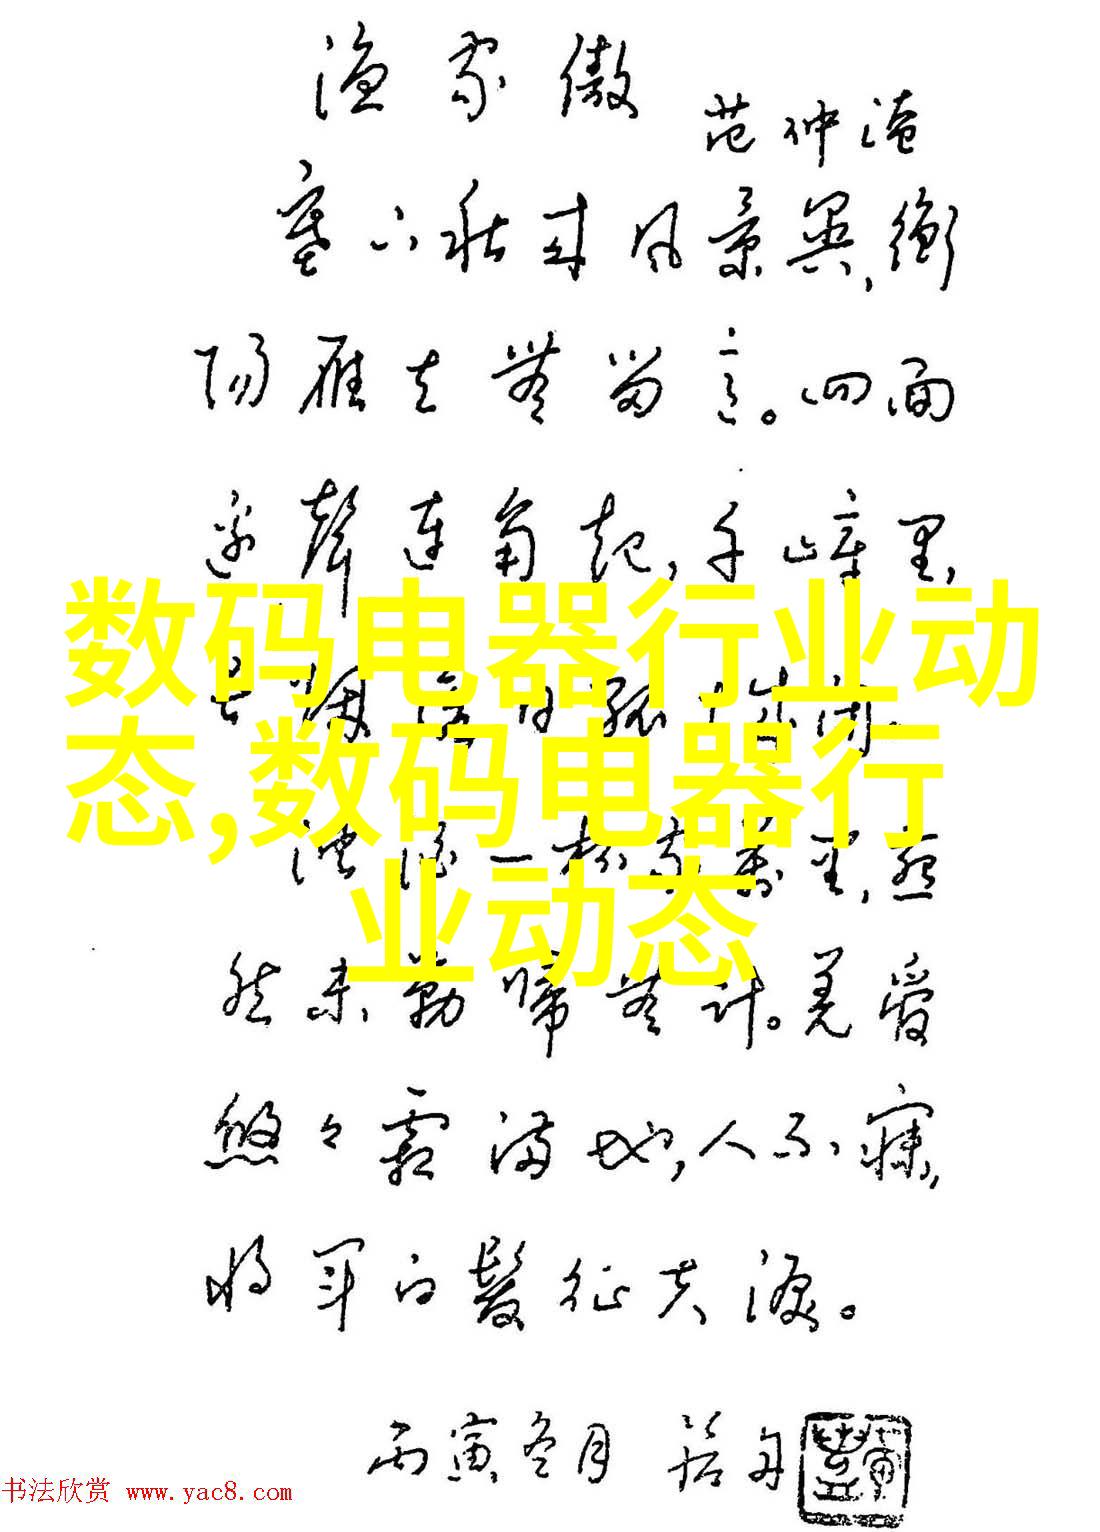 渔家傲
范仲淹
塞下秋来风景异,衡
阳雁去无留意。四面
边聲连角起,千嶂里,
数码电器行业动
态,数码电器行
业动态
浊酒一杯家万里,燕
然未勒归无计。羌管
悠々霜满地,人不寐,
将军白发征夫泪。
丙寅冬月
书法欣赏 www.yac8.com